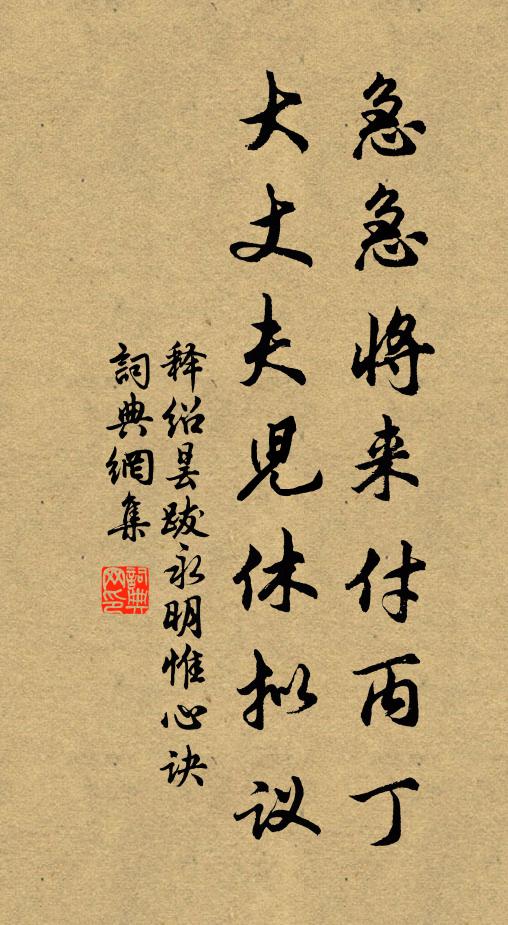 急急将来付丙丁
大丈夫児休拟议
释绍昙跋永明惟心诀
詞典網集
詞典
网印